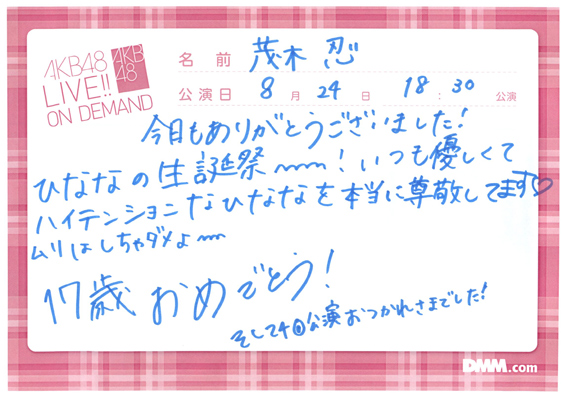 AKB48
LIVE!!
ON DEMAND
AKB
48
名前 茂木 忍
公演日 8月24日 18:30公演
今日もありがとうございました!
ひななの生誕祭〰!いつも優しくて
ハイテンションなひななを本当に尊敬してます♡
ムリはしちゃダメよ〰
17歳おめでとう!
そして4回公演おつかれさまでした!
DMM.com